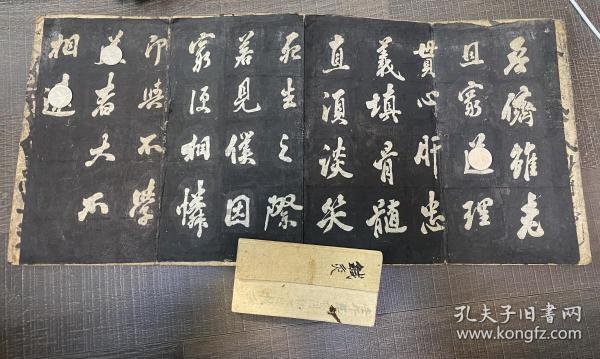 吾儕雖老
且窮道理
貫心肝忠
義填骨髓
直須談笑
死生之際
若見僕困
窮便相憐
即與不學
道者大不
相遠
鍼灸
孔夫子旧书网
www.kongfz.com